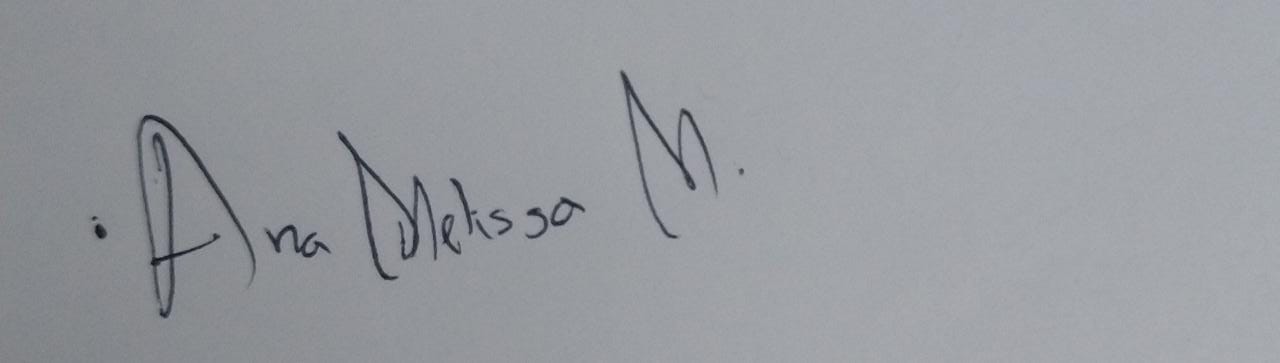 . Ana Melissa M.